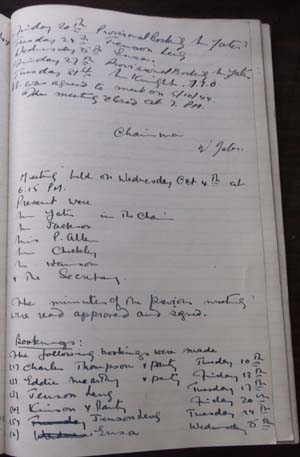 Friday 20th Provisional Booking Mr Yates
Tuesday 24th
Wednesday 25th Ensa.
Friday 27th Provisional Booking Mr Yates
Tuesday 31st Mr Knight.
It was agreed to meet on 5/10/44.
The meeting closed at 9 PM.
Chairman
W Yates.
Meeting held on Wednesday Oct 4th at
6.15 PM.
Present were
Mr Yates in the Chair
Mr Jackson
Miss P. Allen
Mr Checkley
Mr
& The Secretary
The minutes of the previous meeting
were read approved and signd.
Bookings:
The following bookings were made
(1) Charles Thompson & Party Tuesday 10th
(2) Eddie & party Friday 13th
(3) Tuesday 17th
(4) & Party Friday 20th
(5) Tuesday 24
(6) Ensa Wednesday 25